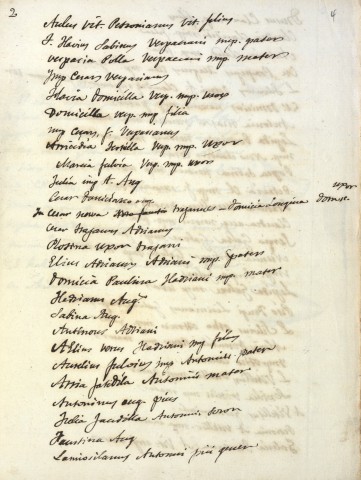 2
4
Aulus Vit. Petronianus Vit. filius
T. Flavius Sabinus Vespasiani imp. pater
Vespasia Polla Vespasiani imp. mater
Imp Cesar Vespasianus
Flavia Domicilla Vesp. imp. uxor
Domicilla Vesp. imp. filia
imp Ceṣ. f. Vespasianus
Arricidia Tertilla Vesp. imp. uxor
Marcia fulvia Vesp. imp. uxor
Julia imp t. Aug
Cesar Domicianus
uxor
Cesar nerva trajanus Domicia Longina Domit.
Cesar Trajanus Adrianus
Plotina uxor Trajani
Elius Adrianus Adriani imp. pater
Domicia Paulina Hadriani imp. mater
Hadrianus Aug.
Sabina Aug.
Antinous Adriani
Aelius verus Hadriani imp filius
Aurelius fulvius imp Antonini pater
Arria fadilla Antonini mater
Antoninus aug. pius
Julia fadilla Antonini soror
Faustina Aug
Antonini pii puer